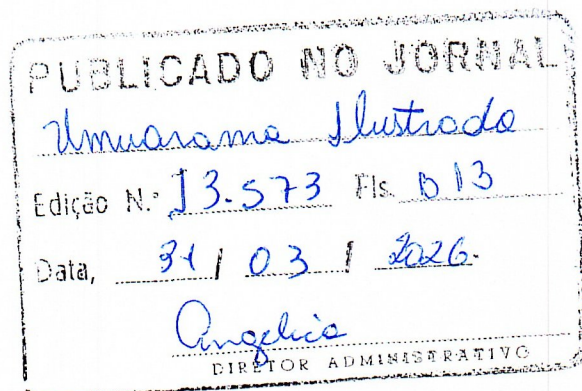 PUBLICADO NO JORNAL
Umuarama Ilustrado
Edição N.º 13.573 Fls. B 13
Data, 31 / 03 / 2026.
Angelica
DIRETOR ADMINISTRATIVO